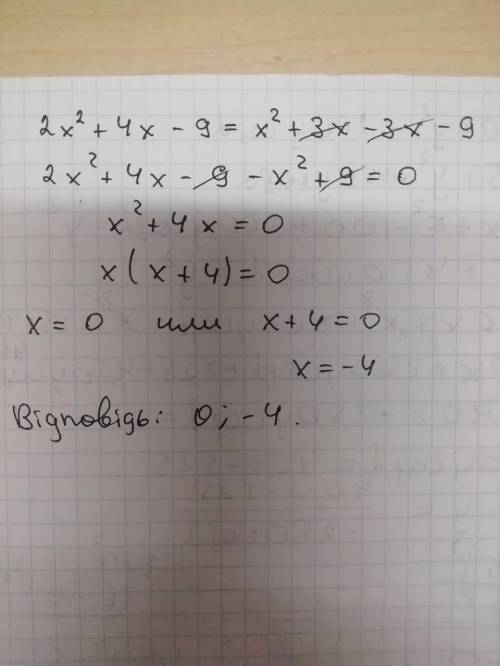 2x² + 4x - 9 = x² + 3x - 3x - 9
2x² + 4x - 9 - x² + 9 = 0
x² + 4x = 0
x(x + 4) = 0
x = 0 или x + 4 = 0
x = -4
Відповідь: 0; -4.